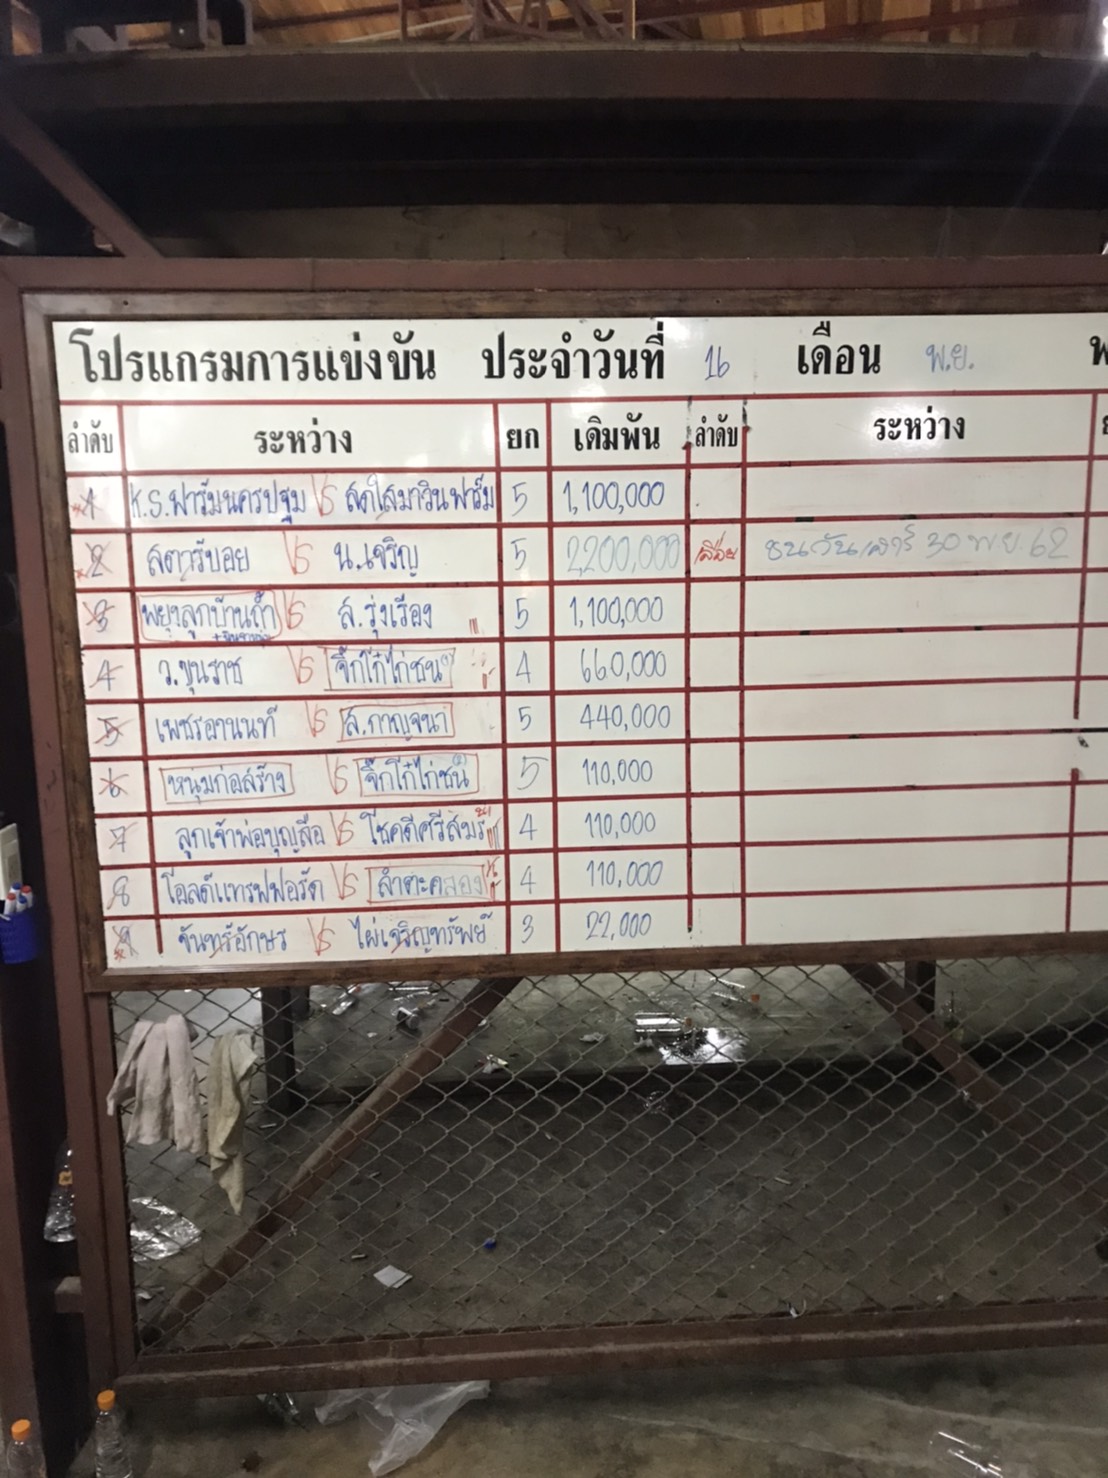 โปรแกรมการแข่งขัน ประจำวันที่ 16 เดือน พ.ย. พ
ลำดับ ระหว่าง ยก เดิมพัน ลำดับ ระหว่าง
1 K.S.ฟาร์มนครปฐม VS สดใสมาวินฟาร์ม 5 1,100,000
2 สตาร์บอย VS น.เจริญ 5 2,200,000 เลื่อน ชนวันเสาร์ 30 พ.ย. 62
3 พยุงลูกบ้านถ้ำ VS ส.รุ่งเรือง 5 1,100,000
4 ว.ขุนราช VS จิ๊กโก๋ไก่ชน 4 660,000
5 เพชรอานนท์ VS ส.กาญจนา 5 440,000
6 หนุ่มก่อสร้าง VS จิ๊กโก๋ไก่ชน 5 110,000
7 ลูกเจ้าพ่อบุญลือ VS โชคดีศรีสมร์ 4 110,000
8 โอลด์แทรฟฟอร์ด VS ลำตะคลอง 4 110,000
9 จันทร์อักษร VS ไผ่เจริญทรัพย์ 3 22,000